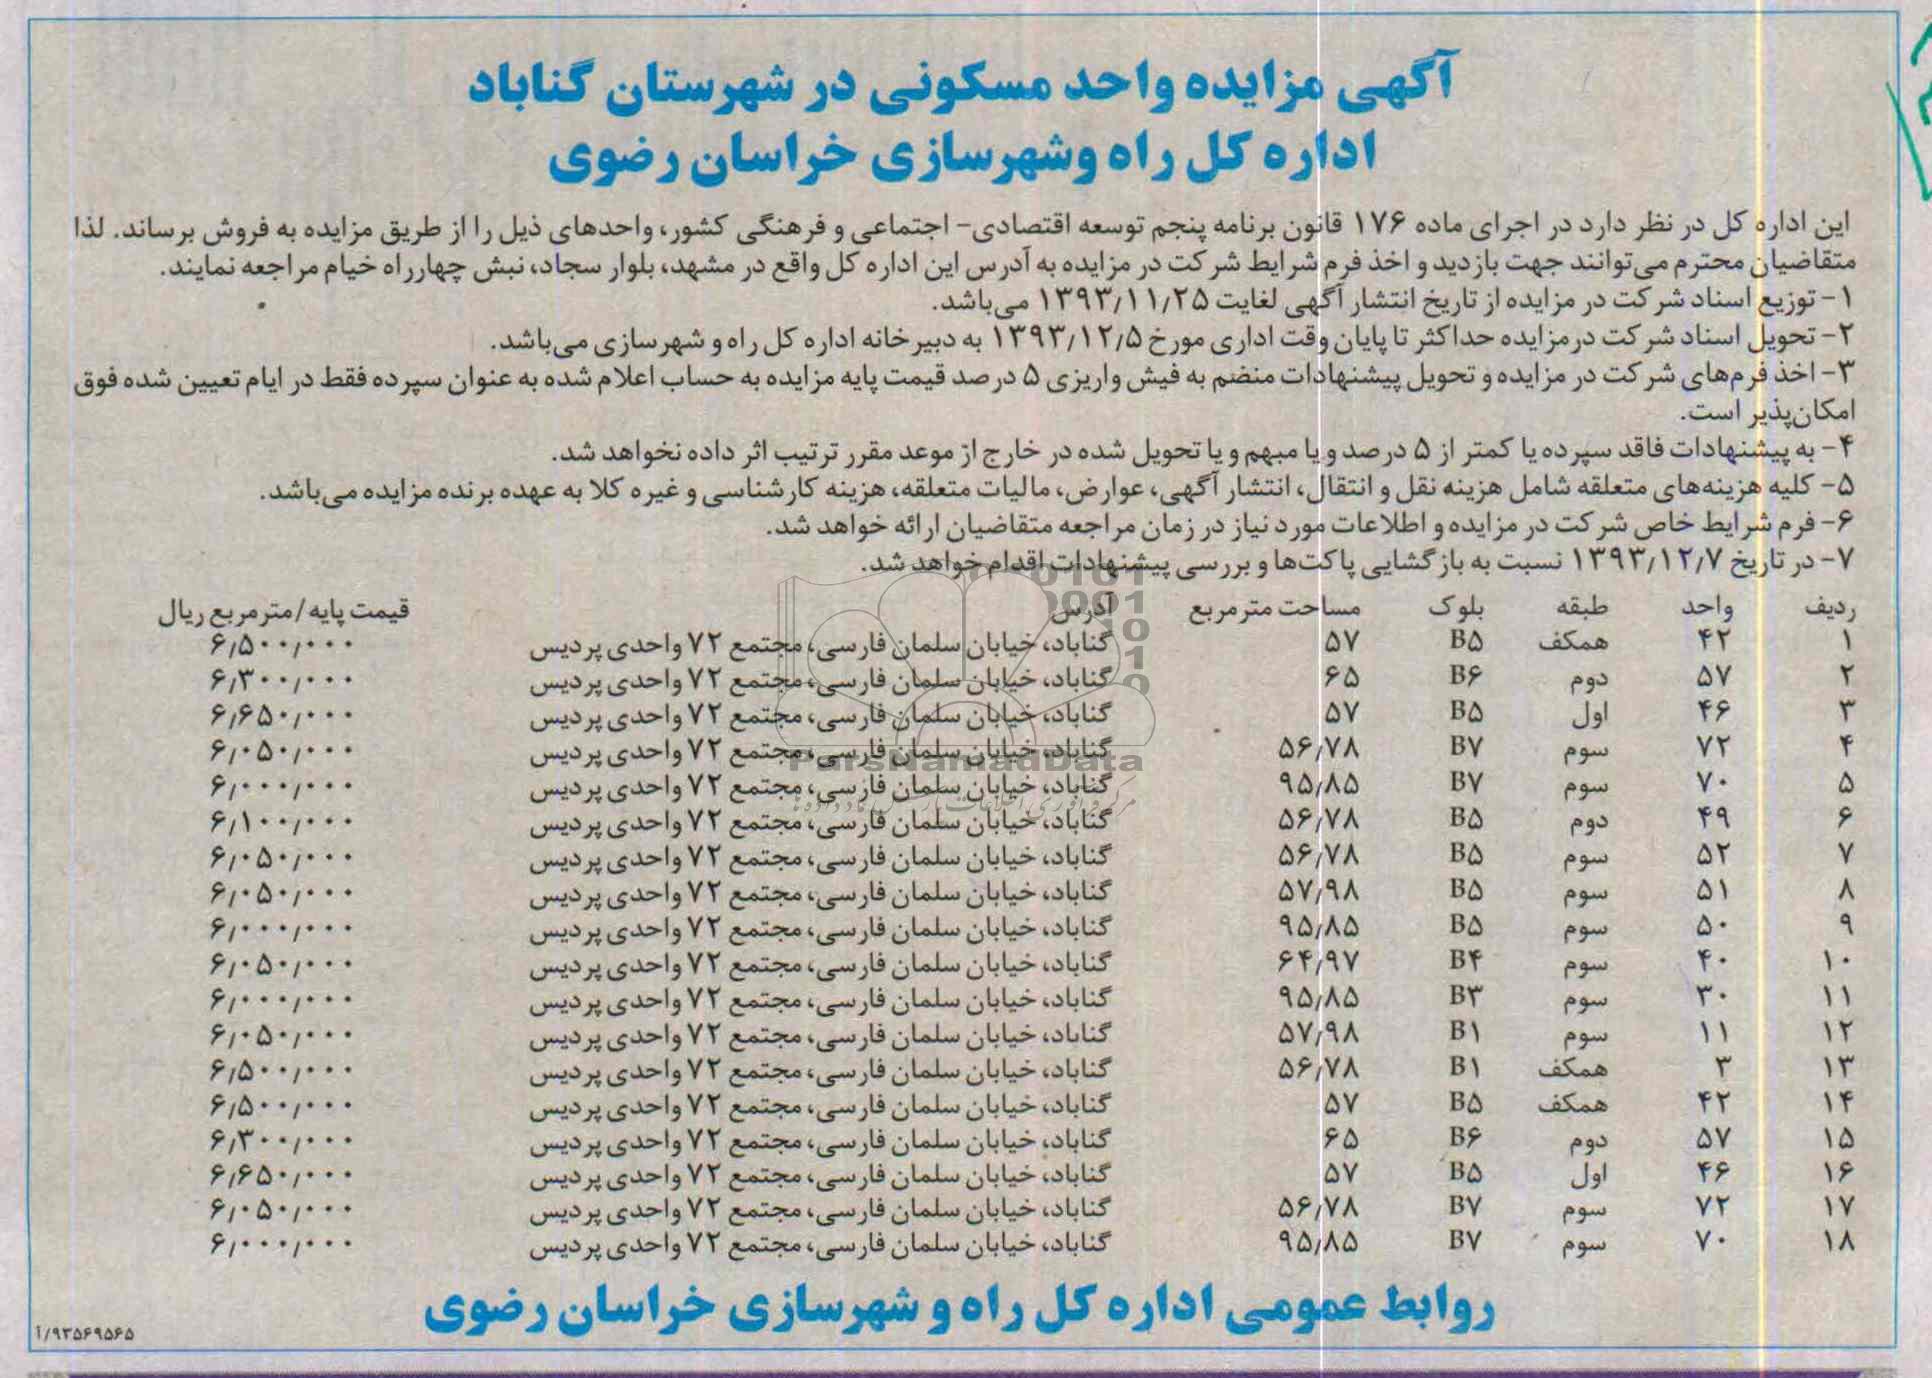 آگهی مزایده واحد مسکونی در شهرستان گناباد
اداره کل راه وشهرسازی خراسان رضوی
این اداره کل در نظر دارد در اجرای ماده ۱۷۶ قانون برنامه پنجم توسعه اقتصادی- اجتماعی و فرهنگی کشور، واحدهای ذیل را از طریق مزایده به فروش برساند. لذا
متقاضیان محترم می‌توانند جهت بازدید و اخذ فرم شرایط شرکت در مزایده به آدرس این اداره کل واقع در مشهد، بلوار سجاد، نبش چهارراه خیام مراجعه نمایند.
۱- توزیع اسناد شرکت در مزایده از تاریخ انتشار آگهی لغایت ۱۳۹۳/۱۱/۲۵ می‌باشد.
۲- تحویل اسناد شرکت درمزایده حداکثر تا پایان وقت اداری مورخ ۱۳۹۳/۱۲/۵ به دبیرخانه اداره کل راه و شهرسازی می‌باشد.
۳- اخذ فرم‌های شرکت در مزایده و تحویل پیشنهادات منضم به فیش واریزی ۵ درصد قیمت پایه مزایده به حساب اعلام شده به عنوان سپرده فقط در ایام تعیین شده فوق
امکان‌پذیر است.
۴- به پیشنهادات فاقد سپرده یا کمتر از ۵ درصد و یا مبهم و یا تحویل شده در خارج از موعد مقرر ترتیب اثر داده نخواهد شد.
۵- کلیه هزینه‌های متعلقه شامل هزینه نقل و انتقال، انتشار آگهی، عوارض، مالیات متعلقه، هزینه کارشناسی و غیره کلا به عهده برنده مزایده می‌باشد.
۶- فرم شرایط خاص شرکت در مزایده و اطلاعات مورد نیاز در زمان مراجعه متقاضیان ارائه خواهد شد.
۷- در تاریخ ۱۳۹۳/۱۲/۷ نسبت به بازگشایی پاکت‌ها و بررسی پیشنهادات اقدام خواهد شد.
ردیف واحد طبقه بلوک مساحت مترمربع آدرس قیمت پایه/مترمربع ریال
۱ ۴۲ همکف B۵ ۵۷ گناباد، خیابان سلمان فارسی، مجتمع ۷۲ واحدی پردیس ۶/۵۰۰/۰۰۰
۲ ۵۷ دوم B۶ ۶۵ گناباد، خیابان سلمان فارسی، مجتمع ۷۲ واحدی پردیس ۶/۳۰۰/۰۰۰
۳ ۴۶ اول B۵ ۵۷ گناباد، خیابان سلمان فارسی، مجتمع ۷۲ واحدی پردیس ۶/۶۵۰/۰۰۰
۴ ۷۲ سوم B۷ ۵۶/۷۸ گناباد، خیابان سلمان فارسی، مجتمع ۷۲ واحدی پردیس ۶/۰۵۰/۰۰۰
۵ ۷۰ سوم B۷ ۹۵/۸۵ گناباد، خیابان سلمان فارسی، مجتمع ۷۲ واحدی پردیس ۶/۰۰۰/۰۰۰
۶ ۴۹ دوم B۵ ۵۶/۷۸ گناباد، خیابان سلمان فارسی، مجتمع ۷۲ واحدی پردیس ۶/۱۰۰/۰۰۰
۷ ۵۲ سوم B۵ ۵۶/۷۸ گناباد، خیابان سلمان فارسی، مجتمع ۷۲ واحدی پردیس ۶/۰۵۰/۰۰۰
۸ ۵۱ سوم B۵ ۵۷/۹۸ گناباد، خیابان سلمان فارسی، مجتمع ۷۲ واحدی پردیس ۶/۰۵۰/۰۰۰
۹ ۵۰ سوم B۵ ۹۵/۸۵ گناباد، خیابان سلمان فارسی، مجتمع ۷۲ واحدی پردیس ۶/۰۰۰/۰۰۰
۱۰ ۴۰ سوم B۴ ۶۴/۹۷ گناباد، خیابان سلمان فارسی، مجتمع ۷۲ واحدی پردیس ۶/۰۵۰/۰۰۰
۱۱ ۳۰ سوم B۳ ۹۵/۸۵ گناباد، خیابان سلمان فارسی، مجتمع ۷۲ واحدی پردیس ۶/۰۰۰/۰۰۰
۱۲ ۱۱ سوم B۱ ۵۷/۹۸ گناباد، خیابان سلمان فارسی، مجتمع ۷۲ واحدی پردیس ۶/۰۵۰/۰۰۰
۱۳ ۳ همکف B۱ ۵۶/۷۸ گناباد، خیابان سلمان فارسی، مجتمع ۷۲ واحدی پردیس ۶/۵۰۰/۰۰۰
۱۴ ۴۲ همکف B۵ ۵۷ گناباد، خیابان سلمان فارسی، مجتمع ۷۲ واحدی پردیس ۶/۵۰۰/۰۰۰
۱۵ ۵۷ دوم B۶ ۶۵ گناباد، خیابان سلمان فارسی، مجتمع ۷۲ واحدی پردیس ۶/۳۰۰/۰۰۰
۱۶ ۴۶ اول B۵ ۵۷ گناباد، خیابان سلمان فارسی، مجتمع ۷۲ واحدی پردیس ۶/۶۵۰/۰۰۰
۱۷ ۷۲ سوم B۷ ۵۶/۷۸ گناباد، خیابان سلمان فارسی، مجتمع ۷۲ واحدی پردیس ۶/۰۵۰/۰۰۰
۱۸ ۷۰ سوم B۷ ۹۵/۸۵ گناباد، خیابان سلمان فارسی، مجتمع ۷۲ واحدی پردیس ۶/۰۰۰/۰۰۰
روابط عمومی اداره کل راه و شهرسازی خراسان رضوی
۹۳۵۶۹۵۶۵/آ
ParsNamadData